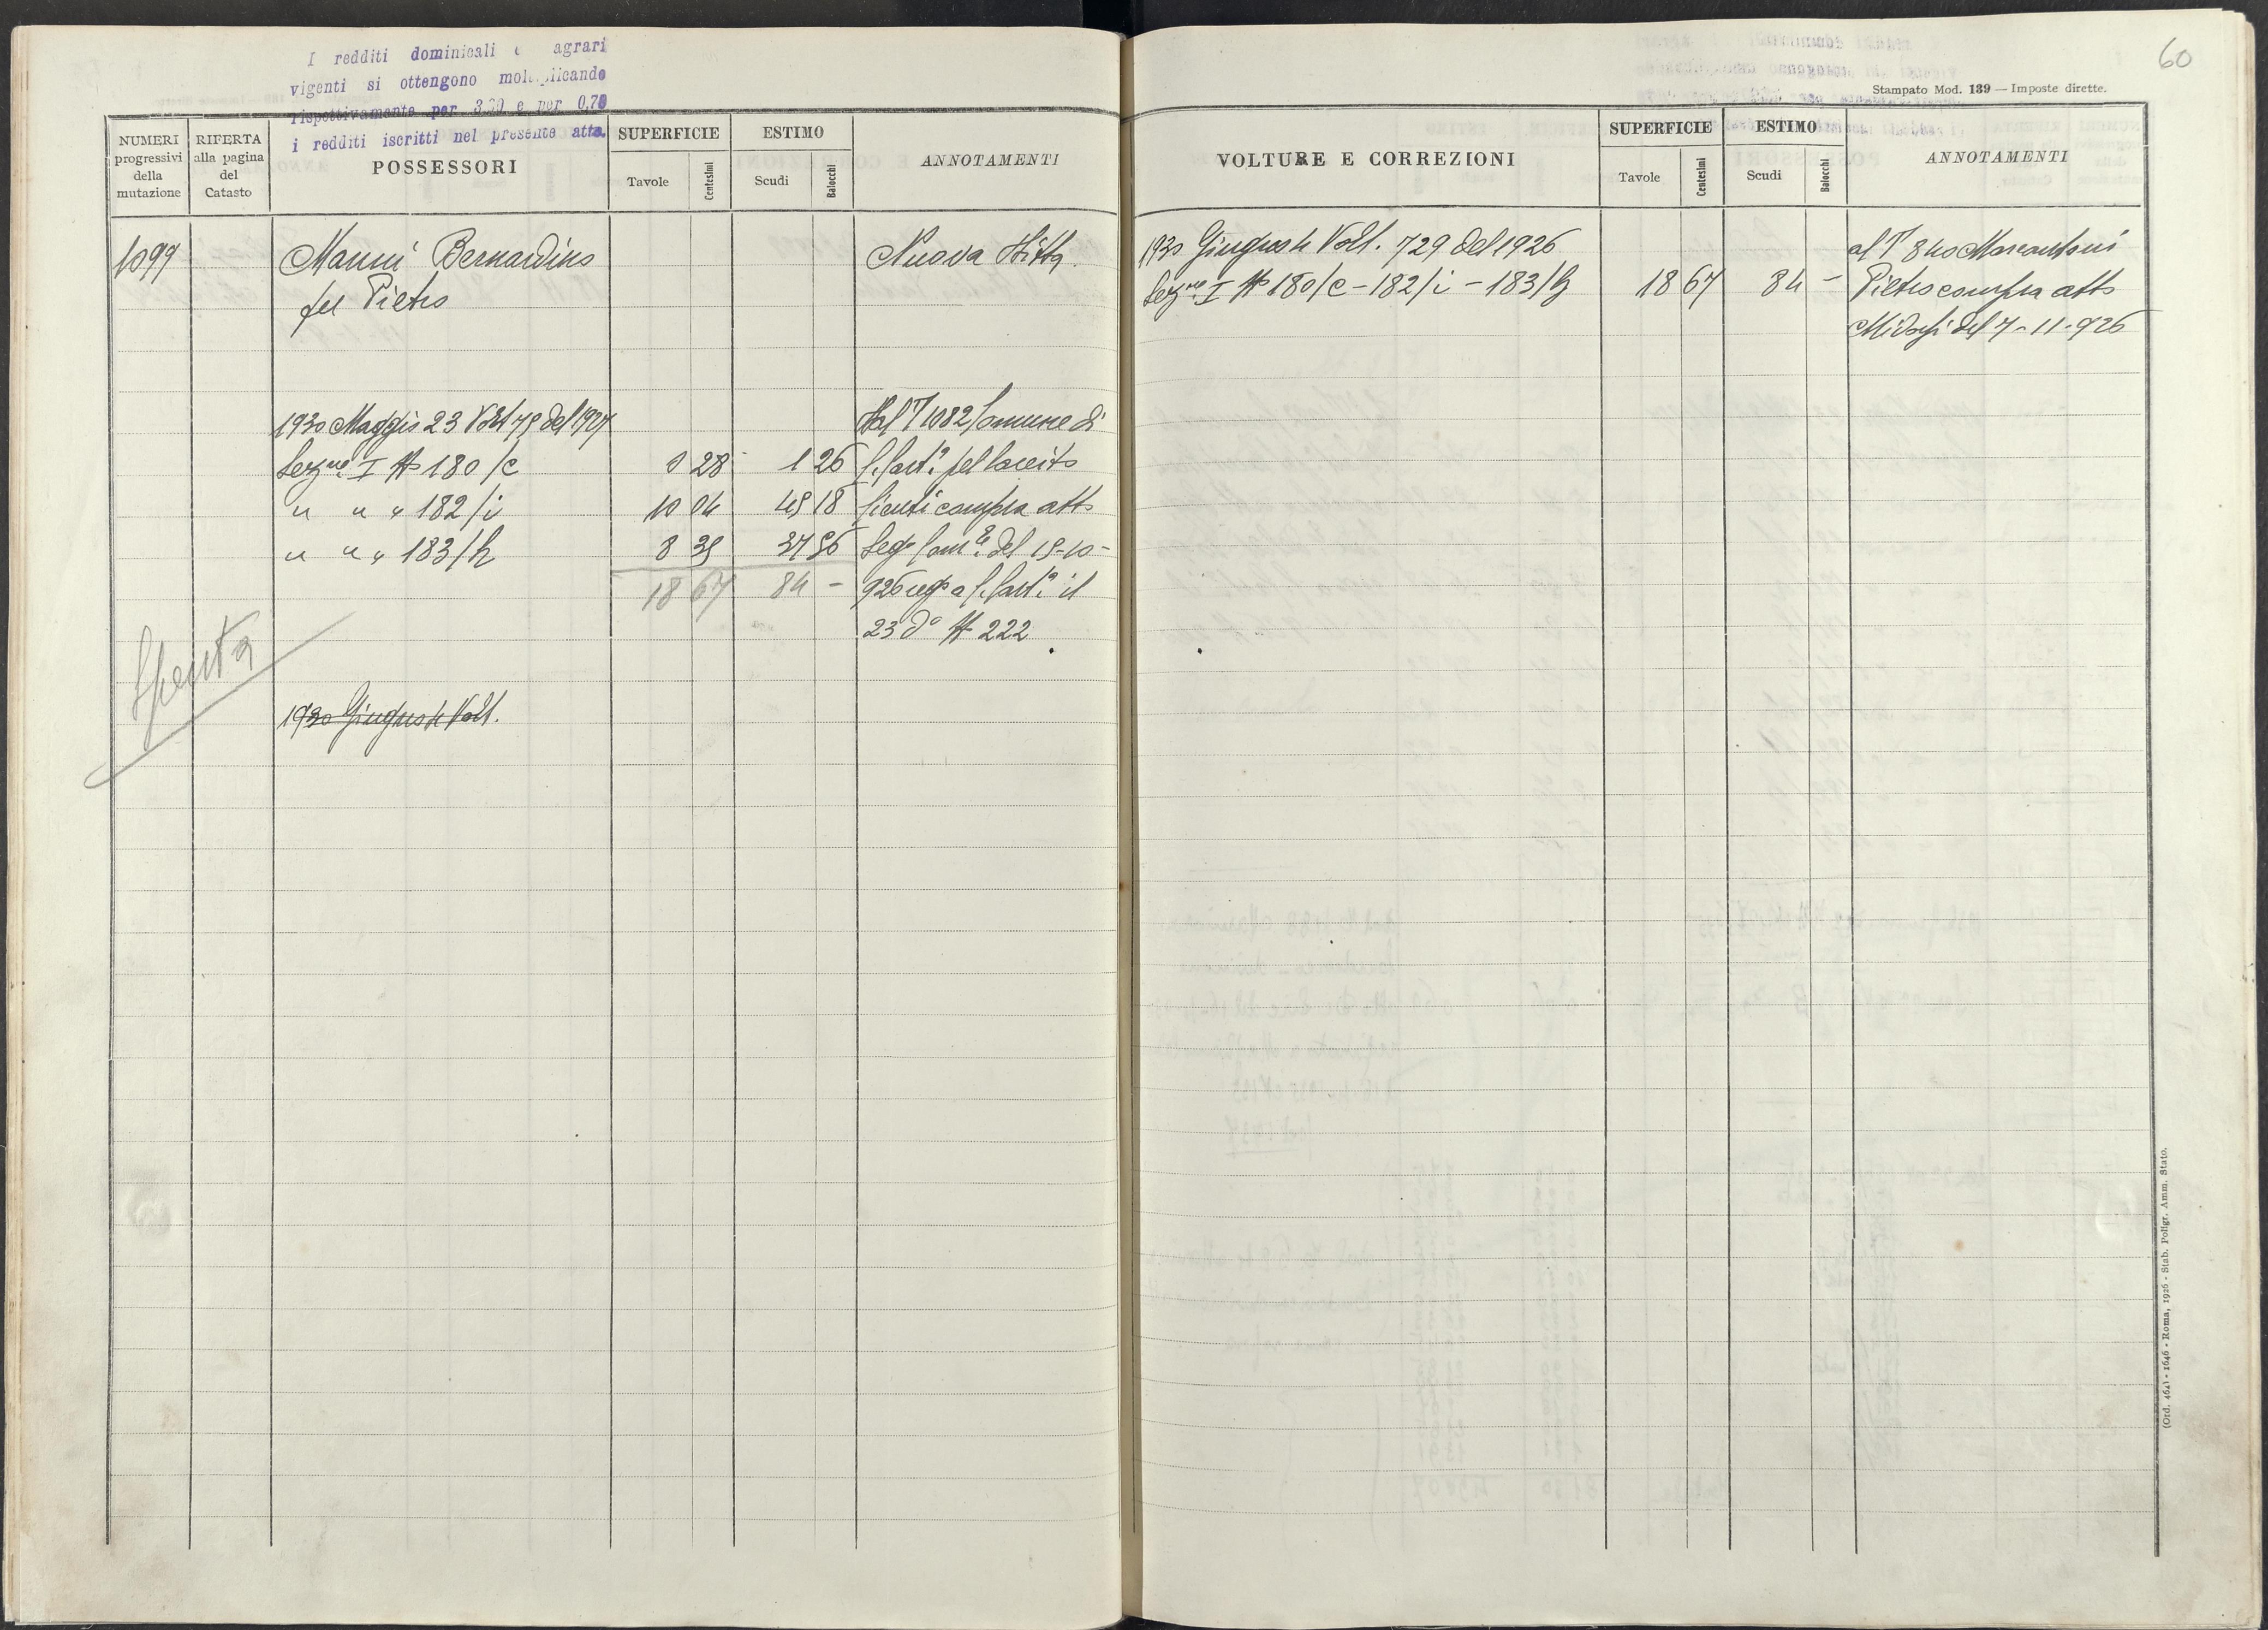 I redditi dominicali e agrari
vigenti si ottengono moltiplicando
rispettivamente per 3,20 e per 0,70
i redditi iscritti nel presente atto.
NUMERI progressivi della mutazione
RIFERTA alla pagina del Catasto
POSSESSORI
SUPERFICIE
Tavole
Centesimi
ESTIMO
Scudi
Baiocchi
ANNOTAMENTI
1099
Manni Bernardino
fu Pietro
Nuova Ditta
1930 Maggio 23 Volt 75 del 1927
Sezne I N 180/c 0 28 1 26
" " " 182/i 10 04 45 18
" " " 183/h 8 35 37 56
18 67 84 -
Dal P 1082 Comune di
Segr Com.e del 15-10-
926 reg a C. Cast.a il
23 do N 222
Spenta
1930 Giugno 4 Volt.
60
Stampato Mod. 139 — Imposte dirette.
VOLTURE E CORREZIONI
SUPERFICIE
Tavole
Centesimi
ESTIMO
Scudi
Baiocchi
ANNOTAMENTI
1930 Giugno 4 Volt. 729 del 1926
Sezne I N 180/c - 182/i - 183/h 18 67 84 -
al P 840 Marcantoni
Pietro compra atto
del 7-11-926
(Ord. 464) - 1646 - Roma, 1926 - Stab. Poligr. Amm. Stato.